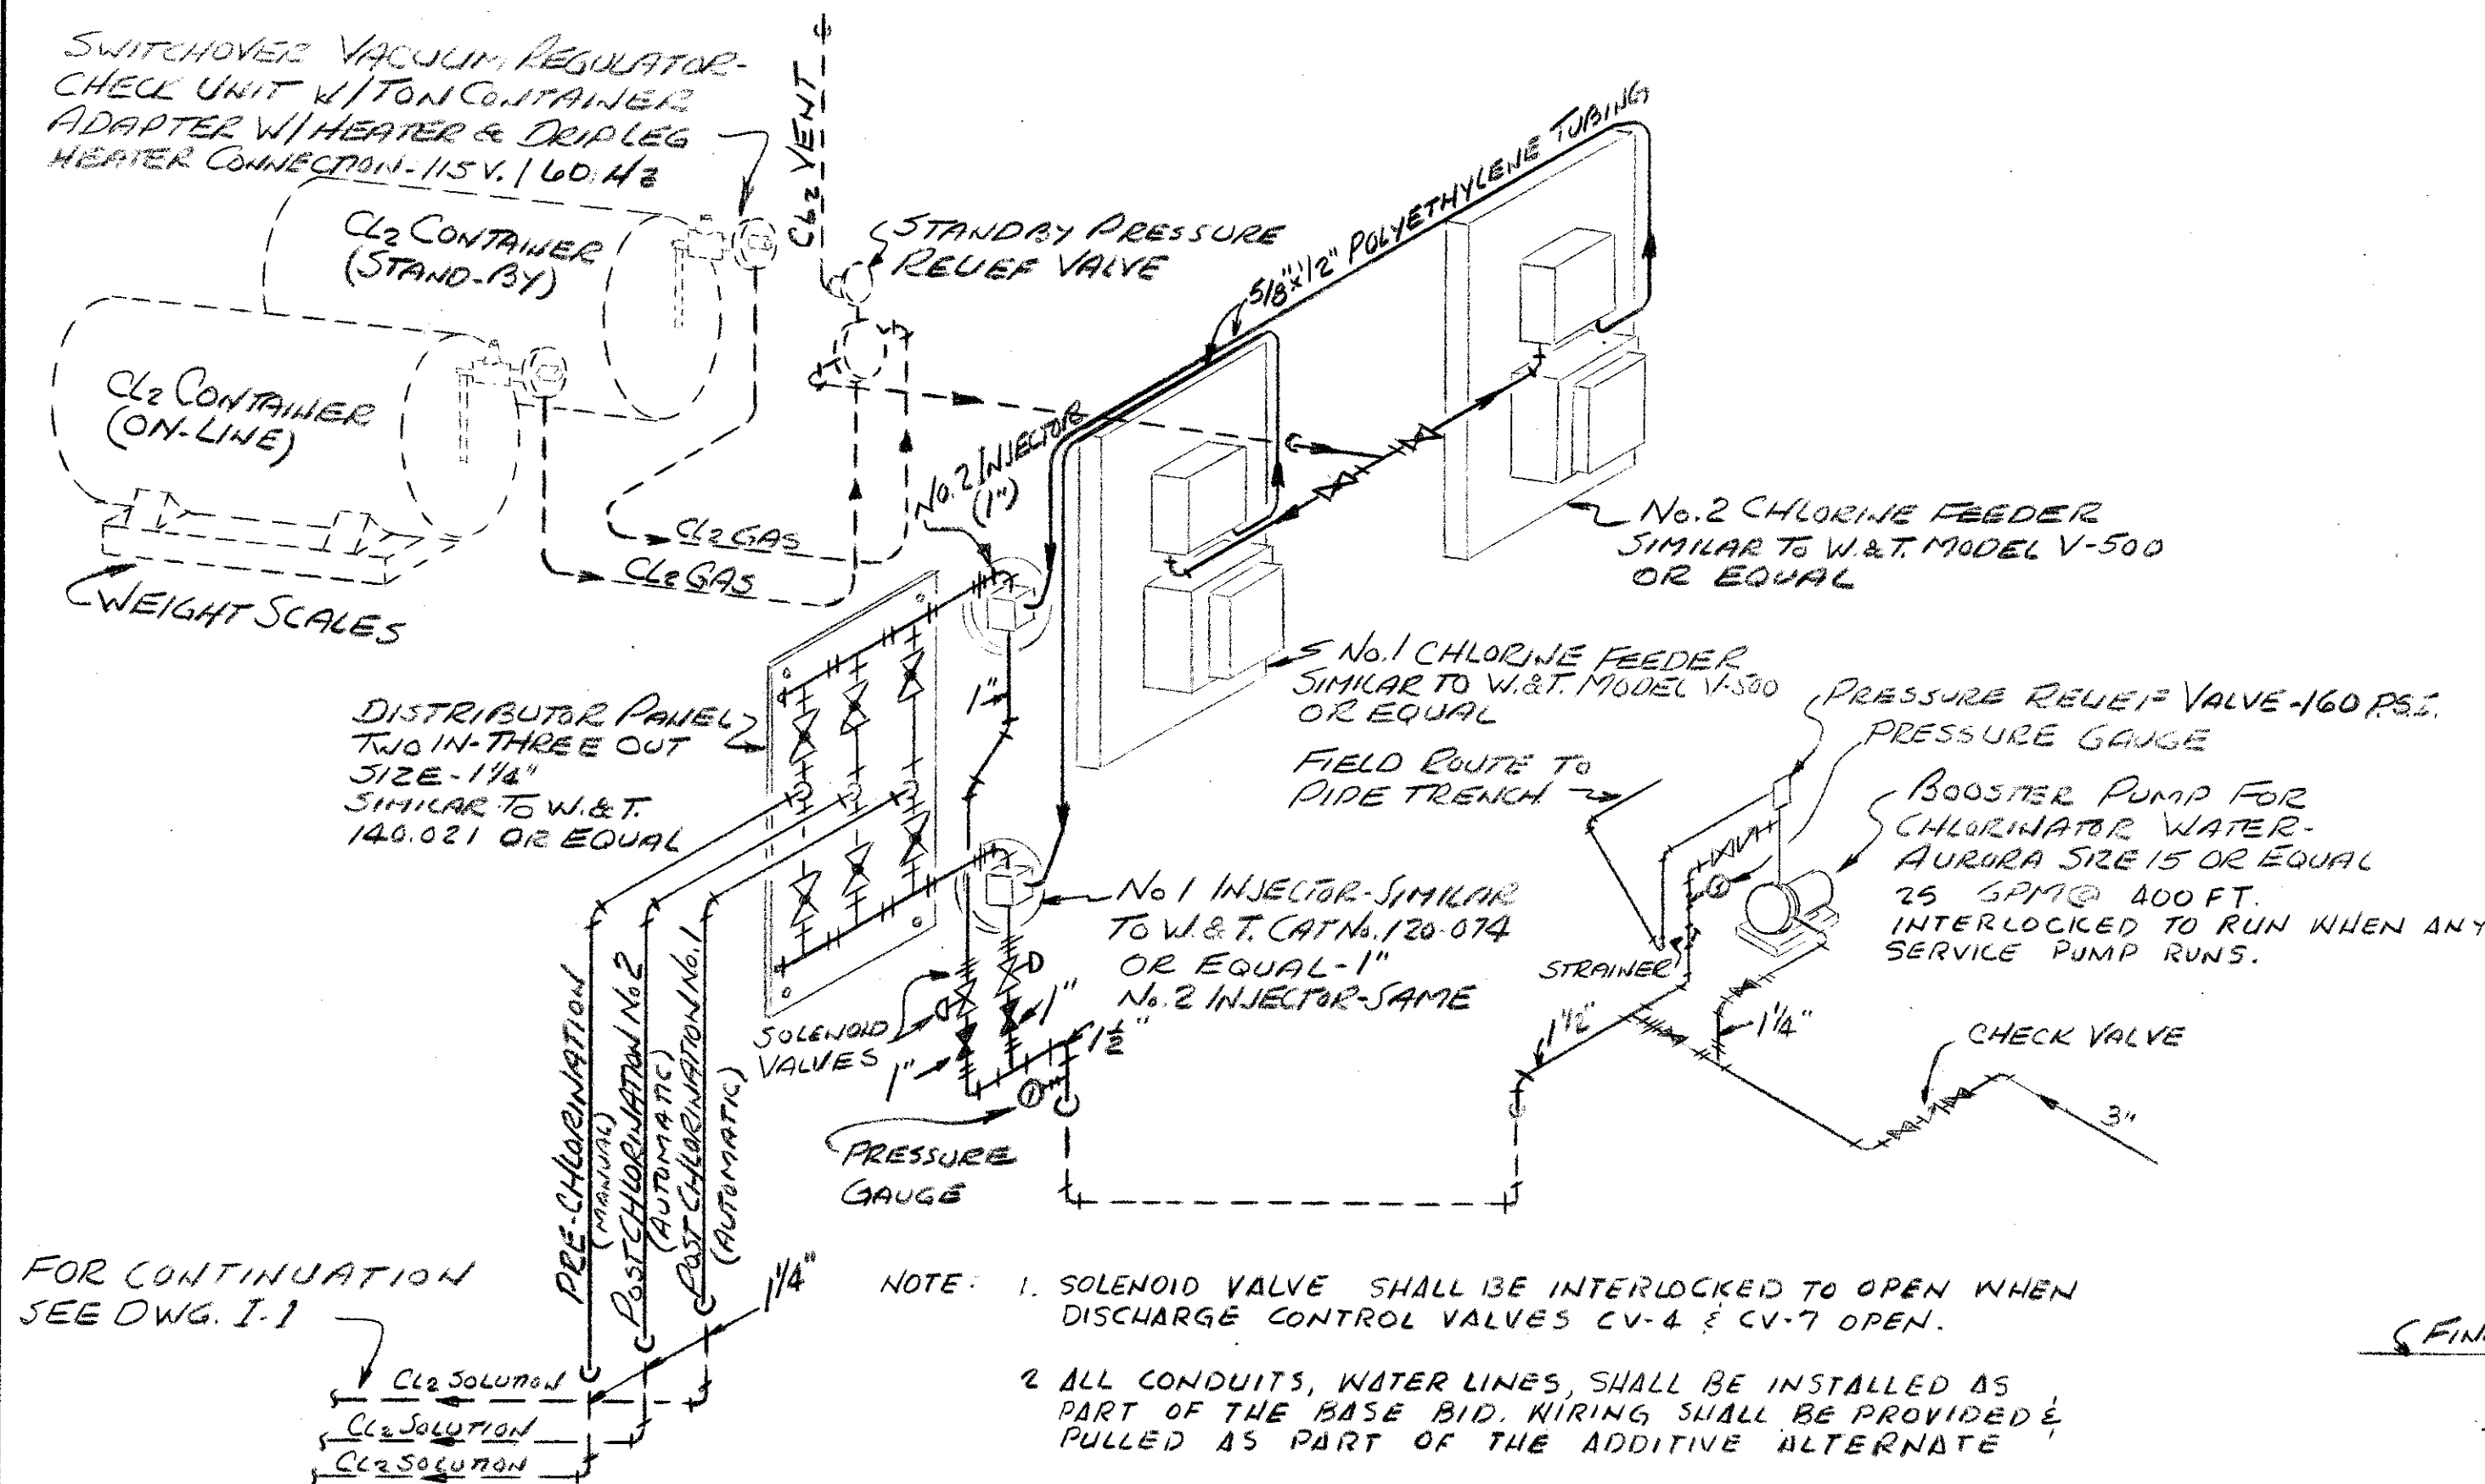 SWITCHOVER VACUUM REGULATOR-
CHECK UNIT W/TON CONTAINER
ADAPTER W/HEATER & DRIP LEG
HEATER CONNECTION-115V./60 Hz
CL2 VENT
CL2 CONTAINER
(STAND-BY)
STANDBY PRESSURE
RELIEF VALVE
5/8"x1/2" POLYETHYLENE TUBING
CL2 CONTAINER
(ON-LINE)
No. 2 INJECTOR
(1")
CL2 GAS
CL2 GAS
WEIGHT SCALES
No. 2 CHLORINE FEEDER
SIMILAR TO W.&T. MODEL V-500
OR EQUAL
No. 1 CHLORINE FEEDER
SIMILAR TO W.&T. MODEL V-500
OR EQUAL
1"
DISTRIBUTOR PANEL
TWO IN-THREE OUT
SIZE-1 1/4"
SIMILAR TO W.&T.
140.021 OR EQUAL
PRESSURE RELIEF VALVE-160 P.S.I.
PRESSURE GAUGE
FIELD ROUTE TO
PIPE TRENCH
BOOSTER PUMP FOR
CHLORINATOR WATER-
AURORA SIZE 15 OR EQUAL
25 GPM @ 400 FT.
INTERLOCKED TO RUN WHEN ANY
SERVICE PUMP RUNS.
No 1 INJECTOR-SIMILAR
TO W.&T. CAT No. 120-074
OR EQUAL-1"
No. 2 INJECTOR-SAME
STRAINER
SOLENOID
VALVES
1"
1"
1 1/2"
1 1/2"
1 1/4"
CHECK VALVE
3"
PRESSURE
GAUGE
PRE-CHLORINATION
(MANUAL)
POST CHLORINATION No. 2
(AUTOMATIC)
POST CHLORINATION No. 1
(AUTOMATIC)
1 1/4"
FOR CONTINUATION
SEE DWG. I-1
CL2 SOLUTION
CL2 SOLUTION
CL2 SOLUTION
NOTE: 1. SOLENOID VALVE SHALL BE INTERLOCKED TO OPEN WHEN
DISCHARGE CONTROL VALVES CV-4 & CV-7 OPEN.
2 ALL CONDUITS, WATER LINES, SHALL BE INSTALLED AS
PART OF THE BASE BID. WIRING SHALL BE PROVIDED &
PULLED AS PART OF THE ADDITIVE ALTERNATE